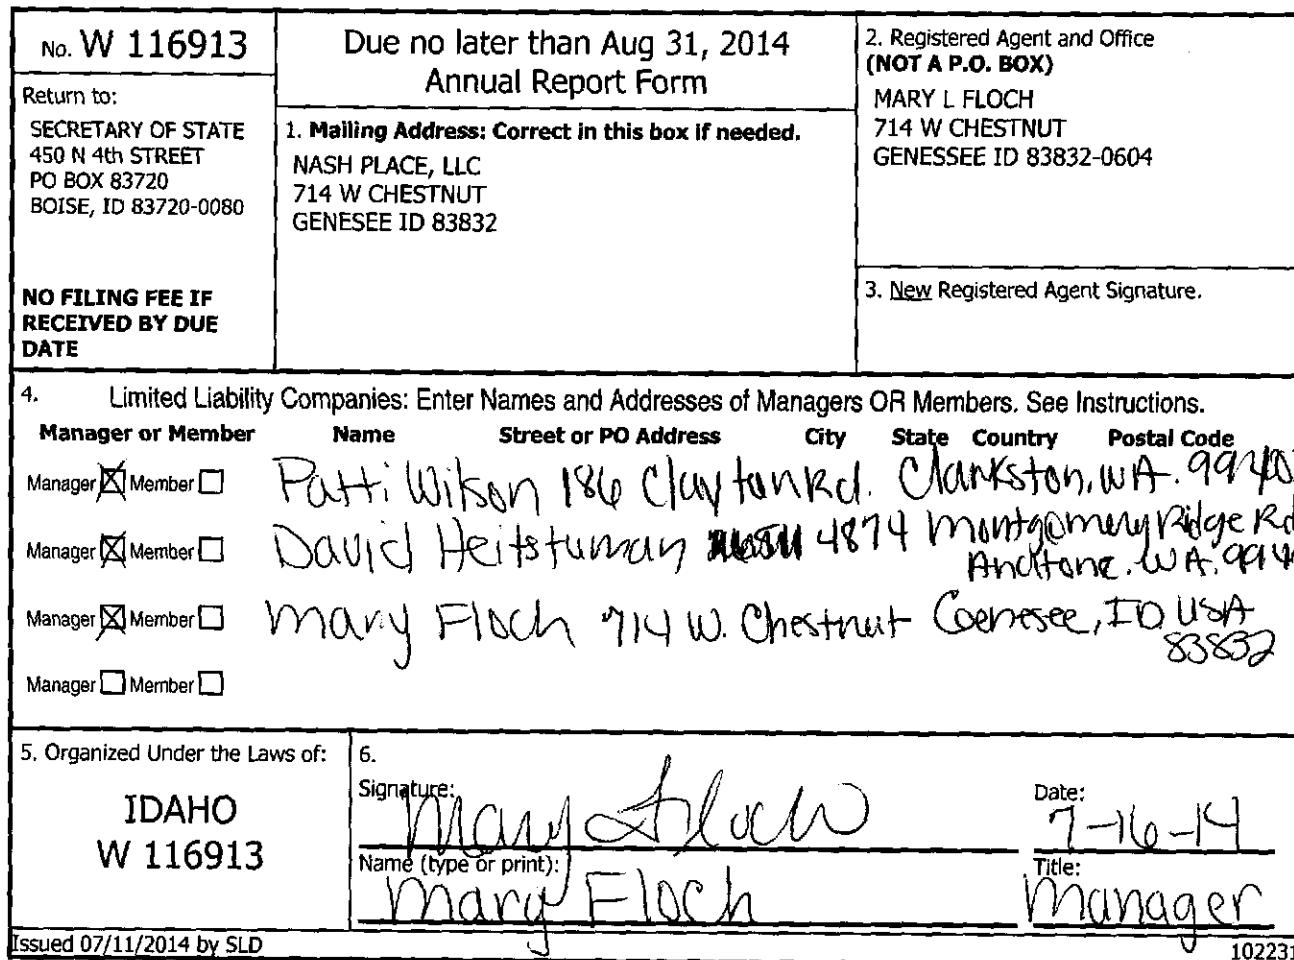 No. W 116913
Return to:
SECRETARY OF STATE
450 N 4th STREET
PO BOX 83720
BOISE, ID 83720-0080
NO FILING FEE IF
RECEIVED BY DUE
DATE
Due no later than Aug 31, 2014
Annual Report Form
1. Mailing Address: Correct in this box if needed.
NASH PLACE, LLC
714 W CHESTNUT
GENESEE ID 83832
2. Registered Agent and Office
(NOT A P.O. BOX)
MARY L FLOCH
714 W CHESTNUT
GENESSEE ID 83832-0604
3. New Registered Agent Signature.
4. Limited Liability Companies: Enter Names and Addresses of Managers OR Members. See Instructions.
Manager or Member Name Street or PO Address City State Country Postal Code
Manager Member Patti Wilson 186 Clayton Rd. Clarkston, WA. 99403
Manager Member David Heitstuman 4874 Montgomery Ridge Rd
WA. 994
Manager Member Mary Floch 714 W. Chestnut Genesee, ID USA
83832
Manager Member
5. Organized Under the Laws of:
IDAHO
W 116913
6.
Signature: Mary Floch
Date: 7-16-14
Name (type or print): Mary Floch
Title: Manager
Issued 07/11/2014 by SLD
102231